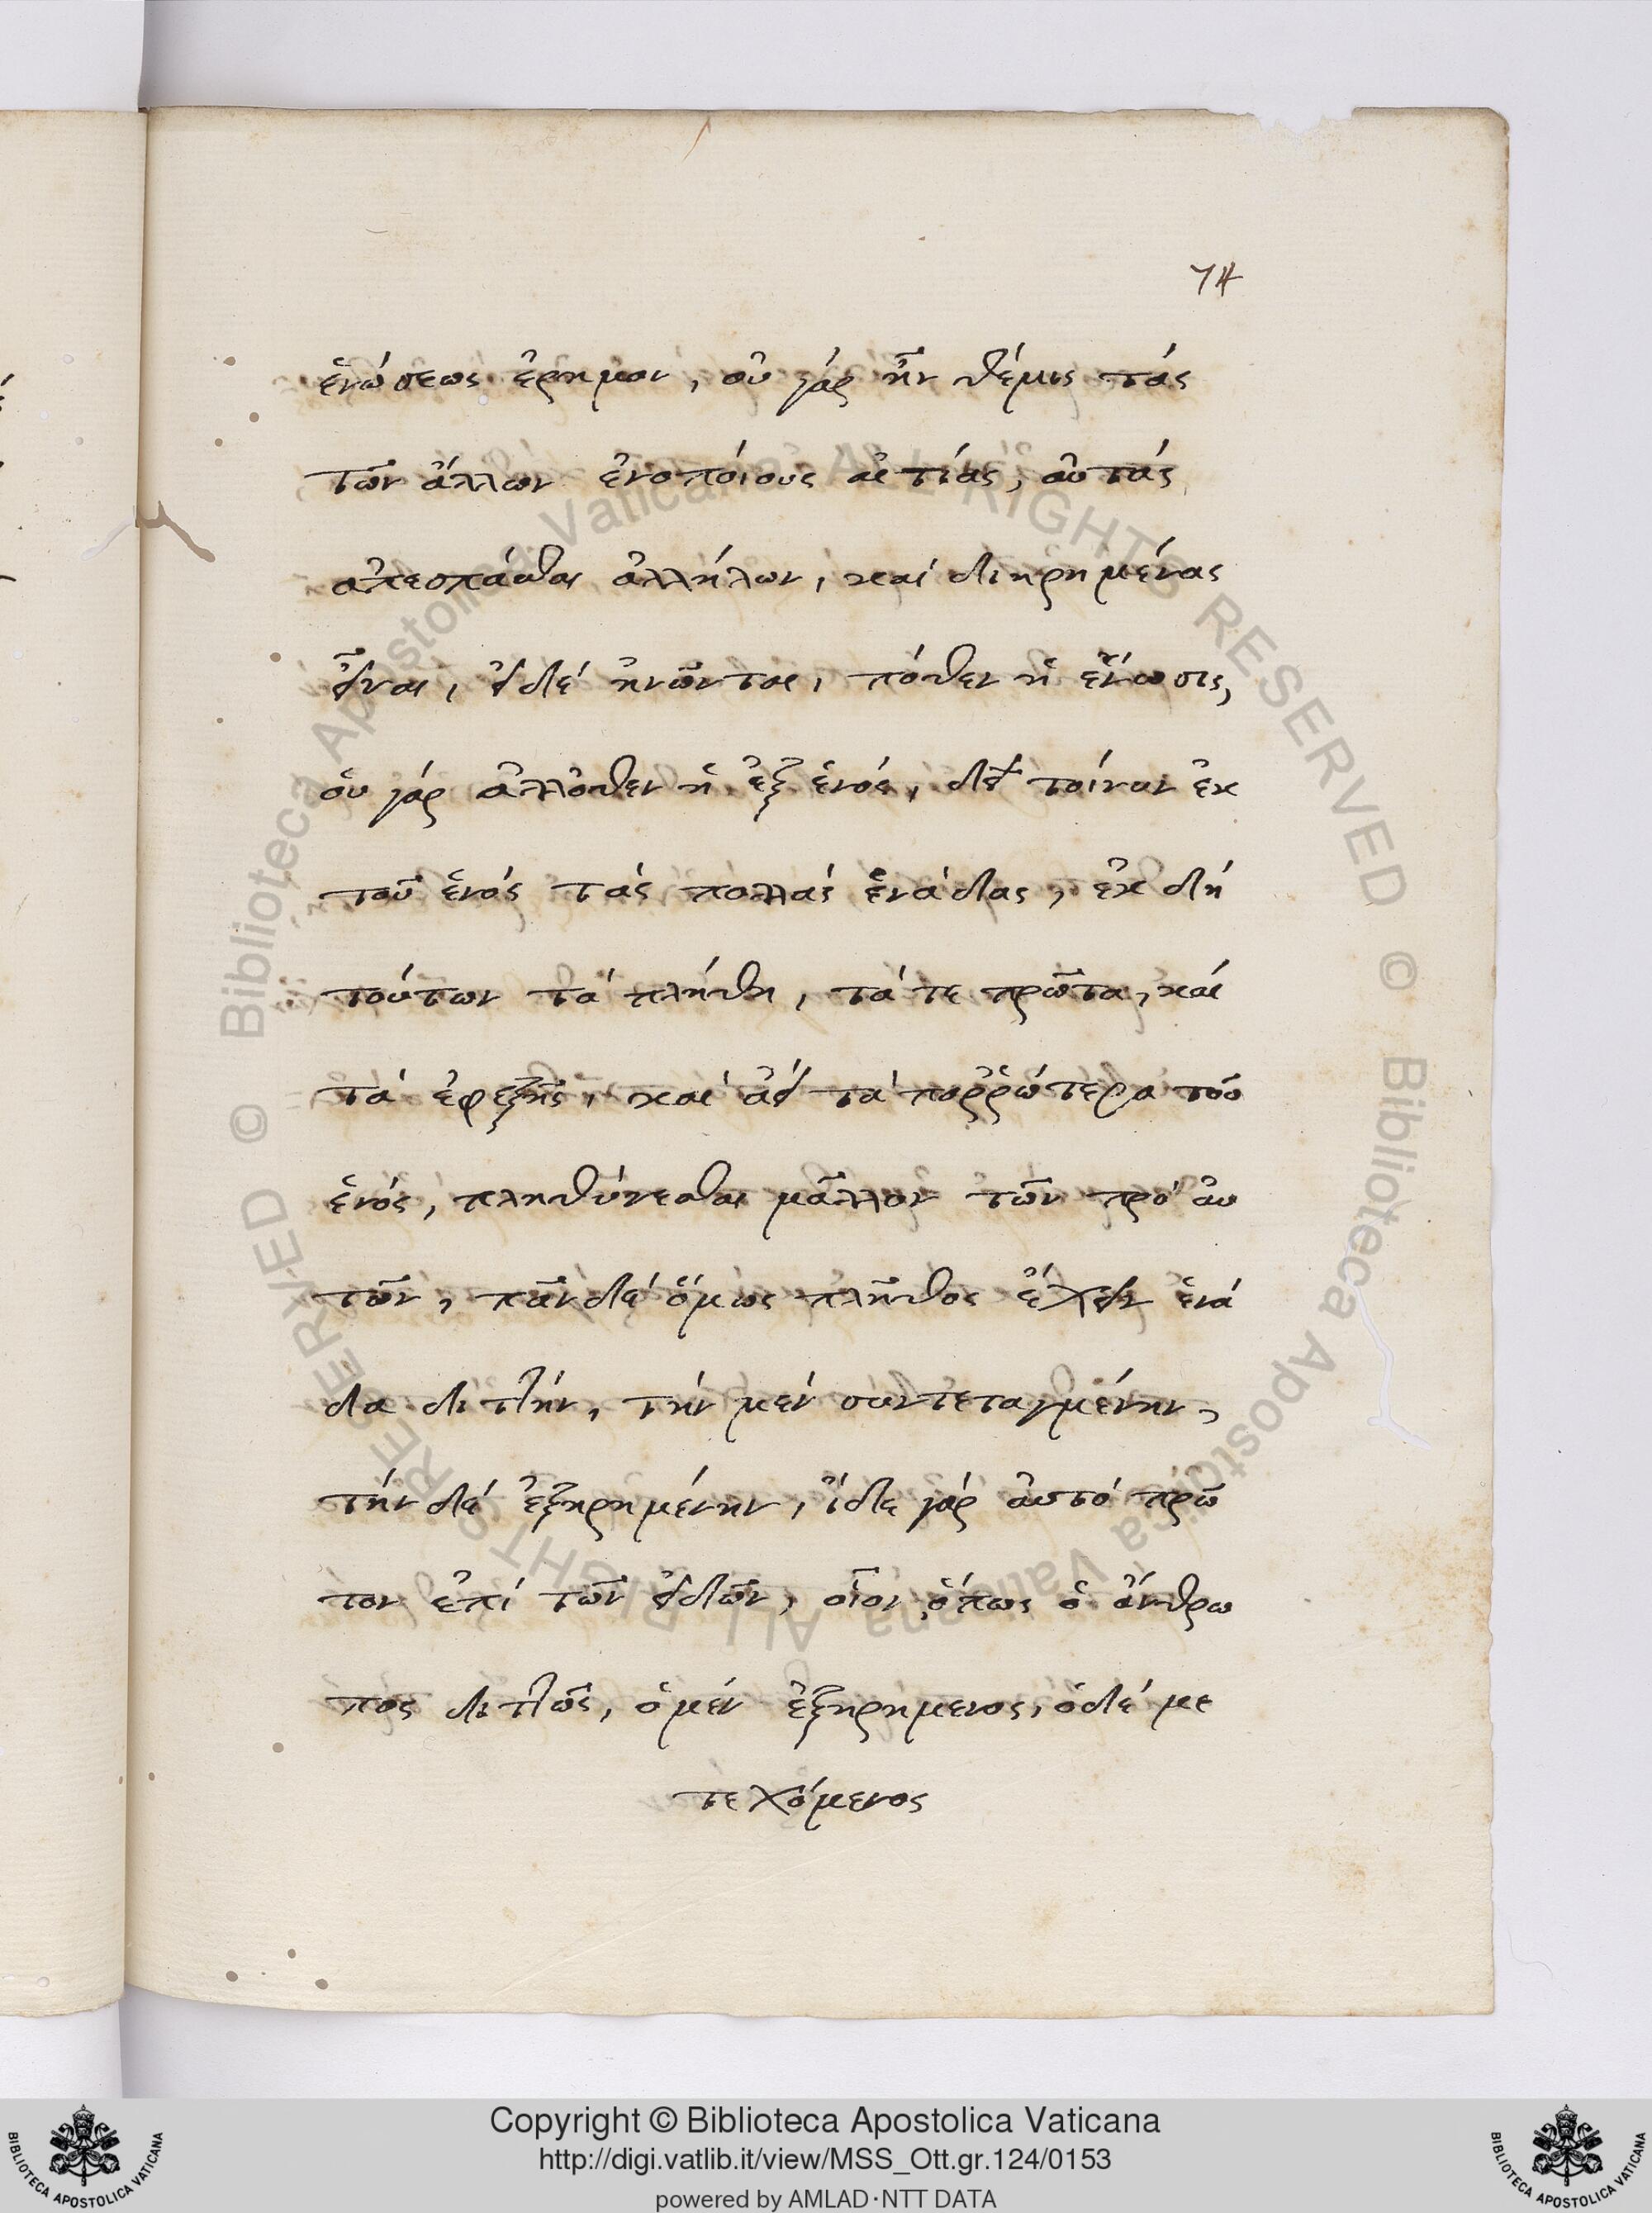 74
ἑνώσεως ἔρημον, οὐ γάρ ἦν θέμις τάς
τῶν ἄλλων ἑνοποίους αἰτίας, αὐτάς
ἀπεσπάσθαι ἀλλήλων, καί διηρημένας
εἶναι, εἰ δέ ἥνωνται, πόθεν ἡ ἕνωσις,
οὐ γάρ ἄλλοθεν ἤ ἐξ ἑνός, δεῖ τοίνυν ἐκ
τοῦ ἑνός τάς πολλάς ἑνάδας, ἐκ δή
τούτων τά πλήθη, τά τε πρῶτα, καί
τά ἐφεξῆς, καί ἀεί τά ποῤῥώτερα τοῦ
ἑνός, πληθύνεσθαι μᾶλλον τῶν πρό αὐ
τῶν, πᾶν δέ ὅμως πλῆθος ἔχειν ἑνά
δα διτλήν, τήν μέν συντεταγμένην,
τήν δέ ἐξηρημένην, ἴδε γάρ αὐτό πρῶ
τον ἐπί τῶν εἰδῶν, οἷον, ὅπως ὁ ἄνθρω
πος διτλῶς, ὁ μέν ἐξηρημενος, ὁ δέ με
τεχόμενος
Copyright © Biblioteca Apostolica Vaticana
http://digi.vatlib.it/view/MSS_Ott.gr.124/0153
powered by AMLAD·NTT DATA
BIBLIOTECA APOSTOLICA VATICANA
BIBLIOTECA APOSTOLICA VATICANA
© Biblioteca Apostolica Vaticana ALL RIGHTS RESERVED
© Biblioteca Apostolica Vaticana ALL RIGHTS RESERVED